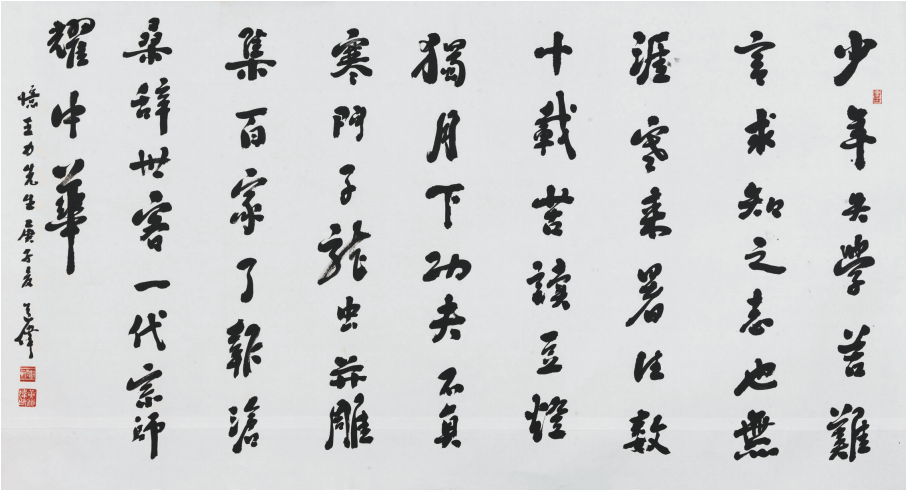 少年失學苦難
言求知之志也無
涯寒来暑往数
十載苦讀豆燈
獨月下功夫不負
寒門子龍虫并雕
集百家了報滄
桑辞世一代宗師
耀中華
憶王力先生庚子夏